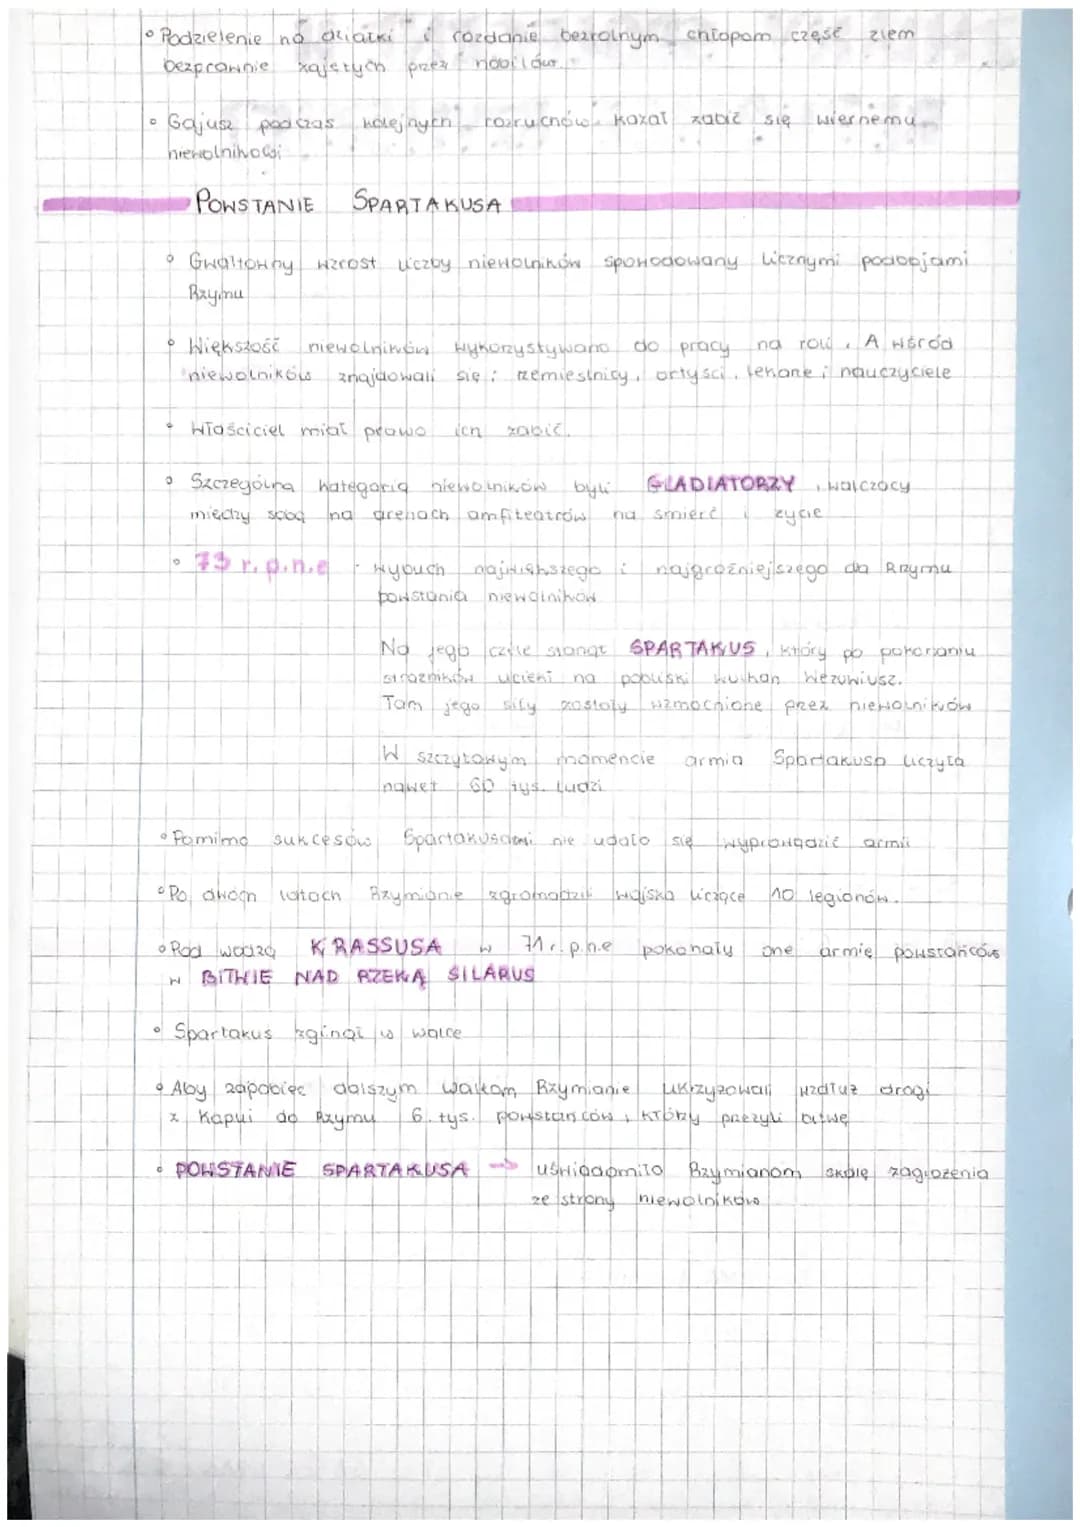 • Podzielenie na działki i rozdanie bezrolnym chłopom część ziem
bezprawnie zajętych przez nobilów.
• Gajusz podczas kolejnych rozruchów kazał zabić się wiernemu
niewolnikowi
POWSTANIE SPARTAKUSA
• Gwałtowny wzrost liczby niewolników spowodowany licznymi podbojami
Rzymu
• Większość niewolników wykorzystywano do pracy na roli. A wśród
niewolników znajdowali się: rzemieślnicy, artyści, lekarze i nauczyciele
• Właściciel miał prawo ich zabić.
• Szczególną kategorią niewolników byli GLADIATORZY, walczący
między sobą na arenach amfiteatrów na śmierć i życie
• 73 r. p.n.e - wybuch największego i najgroźniejszego dla Rzymu
powstania niewolników
Na jego czele stanął SPARTAKUS, który po pokonaniu
strażników uciekł na pobliski wulkan Wezuwiusz.
Tam jego siły zostały wzmocnione przez niewolników
W szczytowym momencie armia Spartakusa liczyła
nawet 60 tys. ludzi
• Pomimo sukcesów Spartakusowi nie udało się wyprowadzić armii
• Po dwóch latach Rzymianie zgromadzili wojska liczące 10 legionów.
• Pod wodzą KRASSUSA w 71 r. p.n.e pokonały one armię powstańców
w BITWIE NAD RZEKĄ SILARUS
• Spartakus zginął w walce
• Aby zapobiec dalszym walkom Rzymianie ukrzyżowali wzdłuż drogi
z Kapui do Rzymu 6 tys. powstańców, którzy przeżyli bitwę
• POWSTANIE SPARTAKUSA → uświadomiło Rzymianom skalę zagrożenia
ze strony niewolników